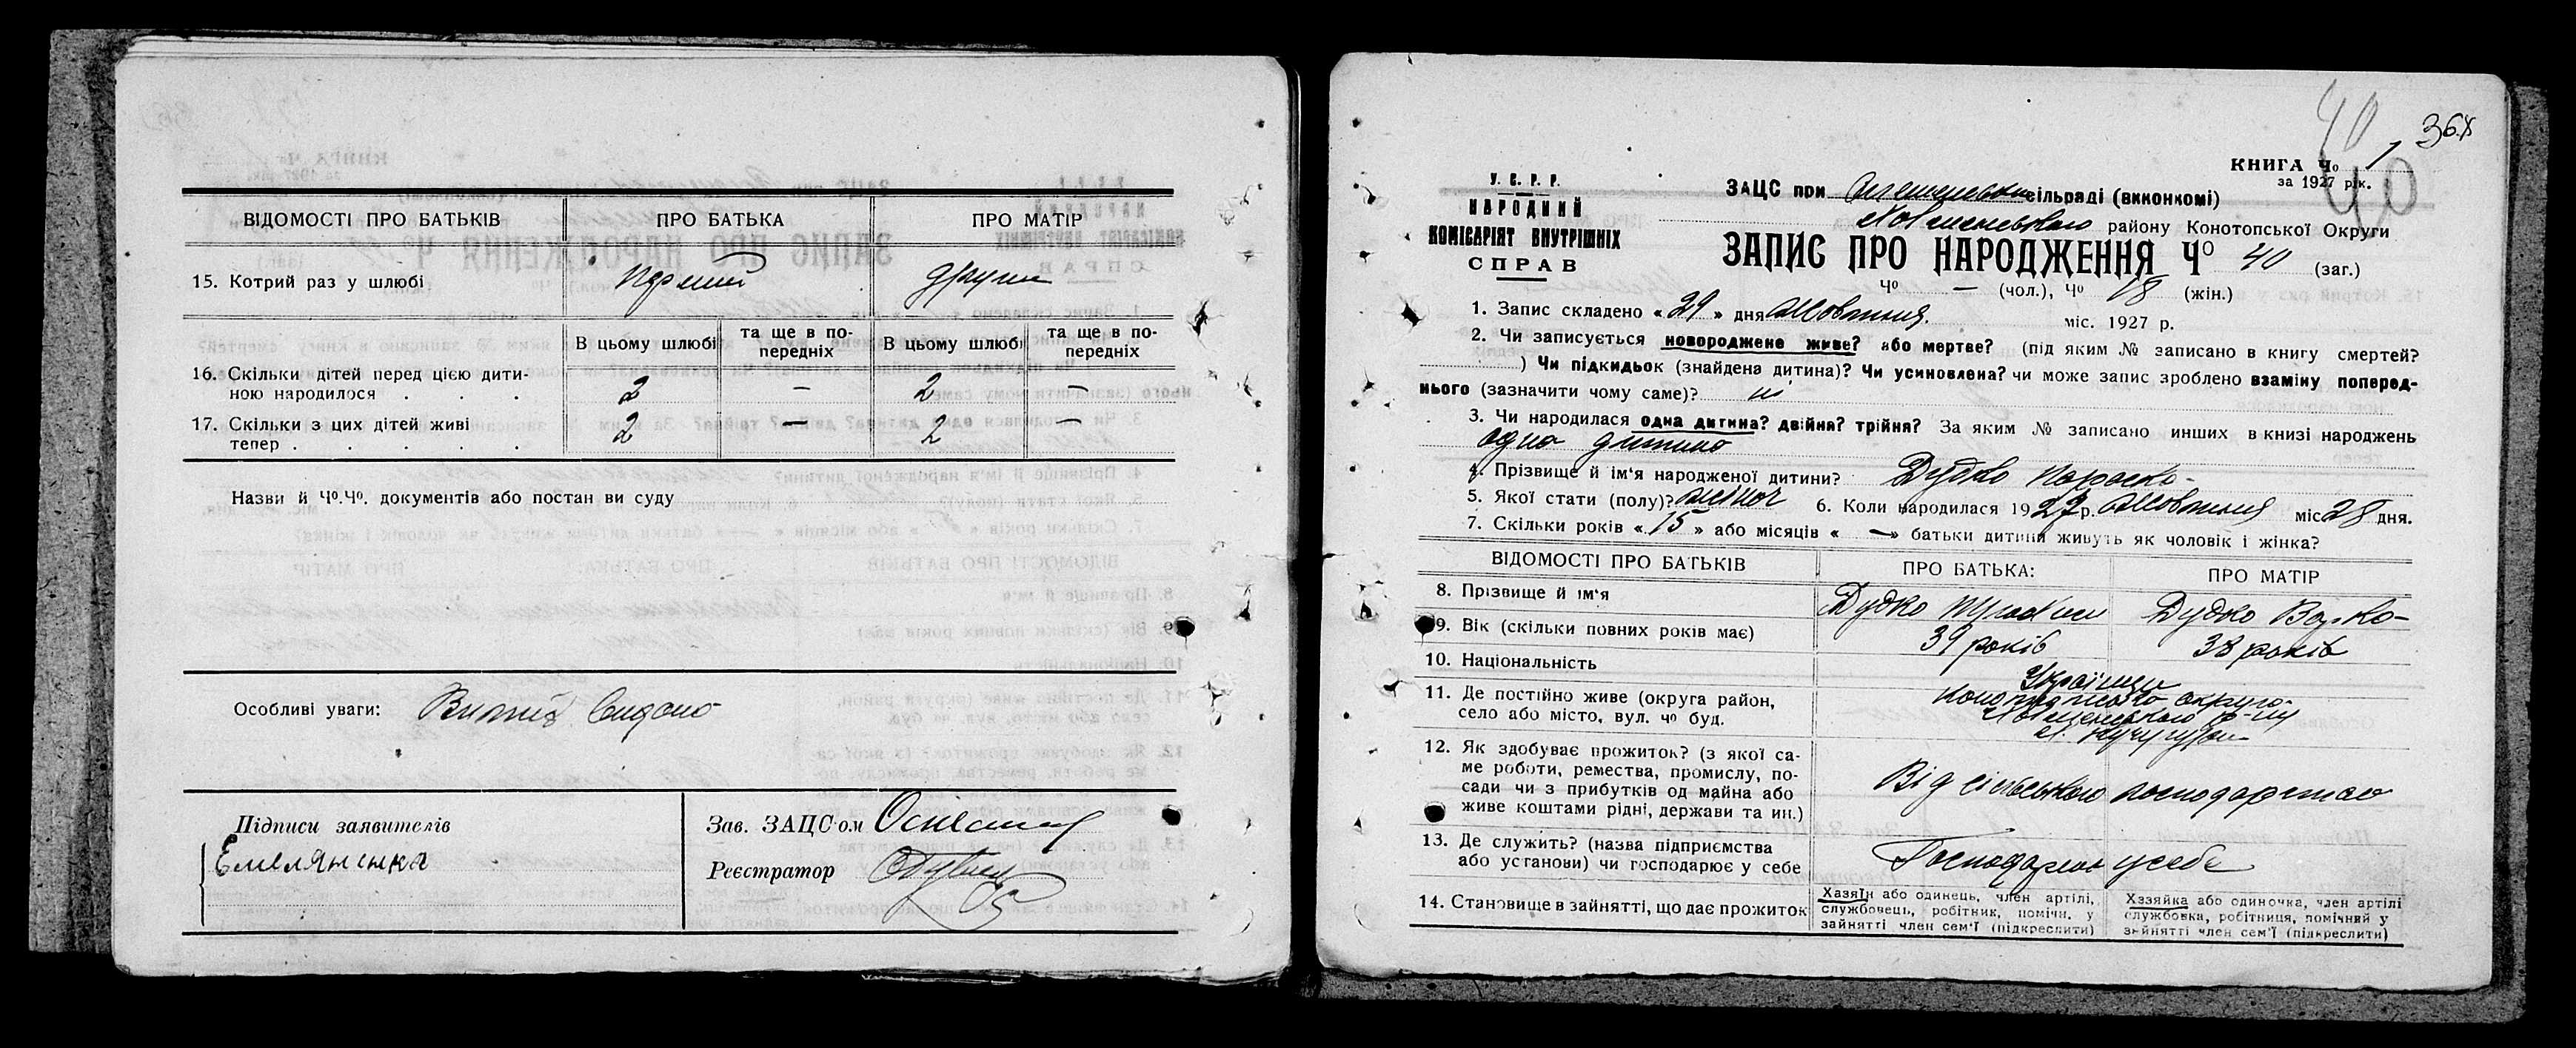 ВІДОМОСТІ ПРО БАТЬКІВ ПРО БАТЬКА ПРО МАТІР
15. Котрий раз у шлюбі перший друга
В цьому шлюбі та ще в по-передніх В цьому шлюбі та ще в по-передніх
16. Скільки дітей перед цією дити-
ною народилося . . . 2 — 2 —
17. Скільки з цих дітей живі
тепер . . . . . 2 — 2 —
Назви й Чо.Чо. документів або постан ви суду
Особливі уваги: Витяг видано
Підписи заявителів
Емеляненка
Зав. ЗАЦС-ом
Реєстратор
40 36
КНИГА Чо 1
за 1927 рік.
40
У. С. Р. Р.
НАРОДНИЙ
КОМІСАРІЯТ ВНУТРІШНІХ
СПРАВ
ЗАЦС при сільраді (виконкомі)
району Конотопської Округи
ЗАПИС ПРО НАРОДЖЕННЯ Чо 40 (заг.)
Чо — (чол.), Чо 18 (жін.)
1. Запис складено « 29 » дня Жовтня міс. 1927 р.
2. Чи записується новороджене живе? або мертве? (під яким № записано в книгу смертей?
) Чи підкидьок (знайдена дитина)? Чи усиновлена? чи може запис зроблено взаміну поперед-
нього (зазначити чому саме)? ні
3. Чи народилася одна дитина? двійня? трійня? За яким № записано инших в книзі народжень
одна дитина
4. Прізвище й ім'я народженої дитини? Дудко Параска
5. Якої стати (полу)? жіноч 6. Коли народилася 1927 р. Жовтня міс 28 дня.
7. Скільки років « 15 » або місяців « — » батьки дитини живуть як чоловік і жінка?
ВІДОМОСТІ ПРО БАТЬКІВ ПРО БАТЬКА: ПРО МАТІР
8. Прізвище й ім'я Дудко Дудко
9. Вік (скільки повних років має) 39 років 38 років
10. Національність Українці
11. Де постійно живе (округа район,
село або місто, вул. чо буд.
12. Як здобуває прожиток? (з якої са-
ме роботи, ремества, промислу, по-
сади чи з прибутків од майна або
живе коштами рідні, держави та ин.)
Від сільського господарства
13. Де служить? (назва підприємства
або установи) чи господарює у себе
Господарює у себе
14. Становище в зайнятті, що дає прожиток
Хазяїн або одинець, член артілі,
службовець, робітник, поміч. у
зайнятті член сем'ї (підкреслити)
Хазяйка або одиночка, член артілі
службовка, робітниця, помічний у
зайнятті член сем'ї (підкреслити)